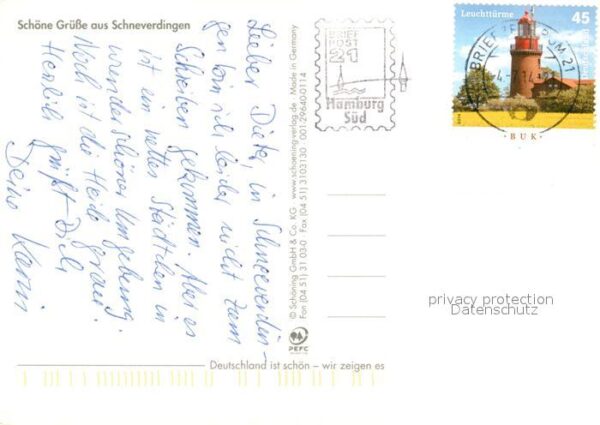 Schöne Grüße aus Schneverdingen
Lieber Dieter, in Schneeverdin-
gen bin ich leider nicht zum
Schreiben gekommen. Aber es
ist ein nettes Städtchen in
wunderschöner Umgebung.
Noch ist die Heide grau!
Herzlich grüßt Dich
Deine Karin
© Schöning GmbH & Co. KG · www.schoening-verlag.de · Made in Germany
Fon (04 51) 31 03-0 · Fax (04 51) 3103130 · 001-29640-0114
PEFC
Deutschland ist schön – wir zeigen es
BRIEF
POST
21
Hamburg
Süd
Leuchttürme
45
BRIEFZENTRUM 21
BUK
privacy protection
Datenschutz